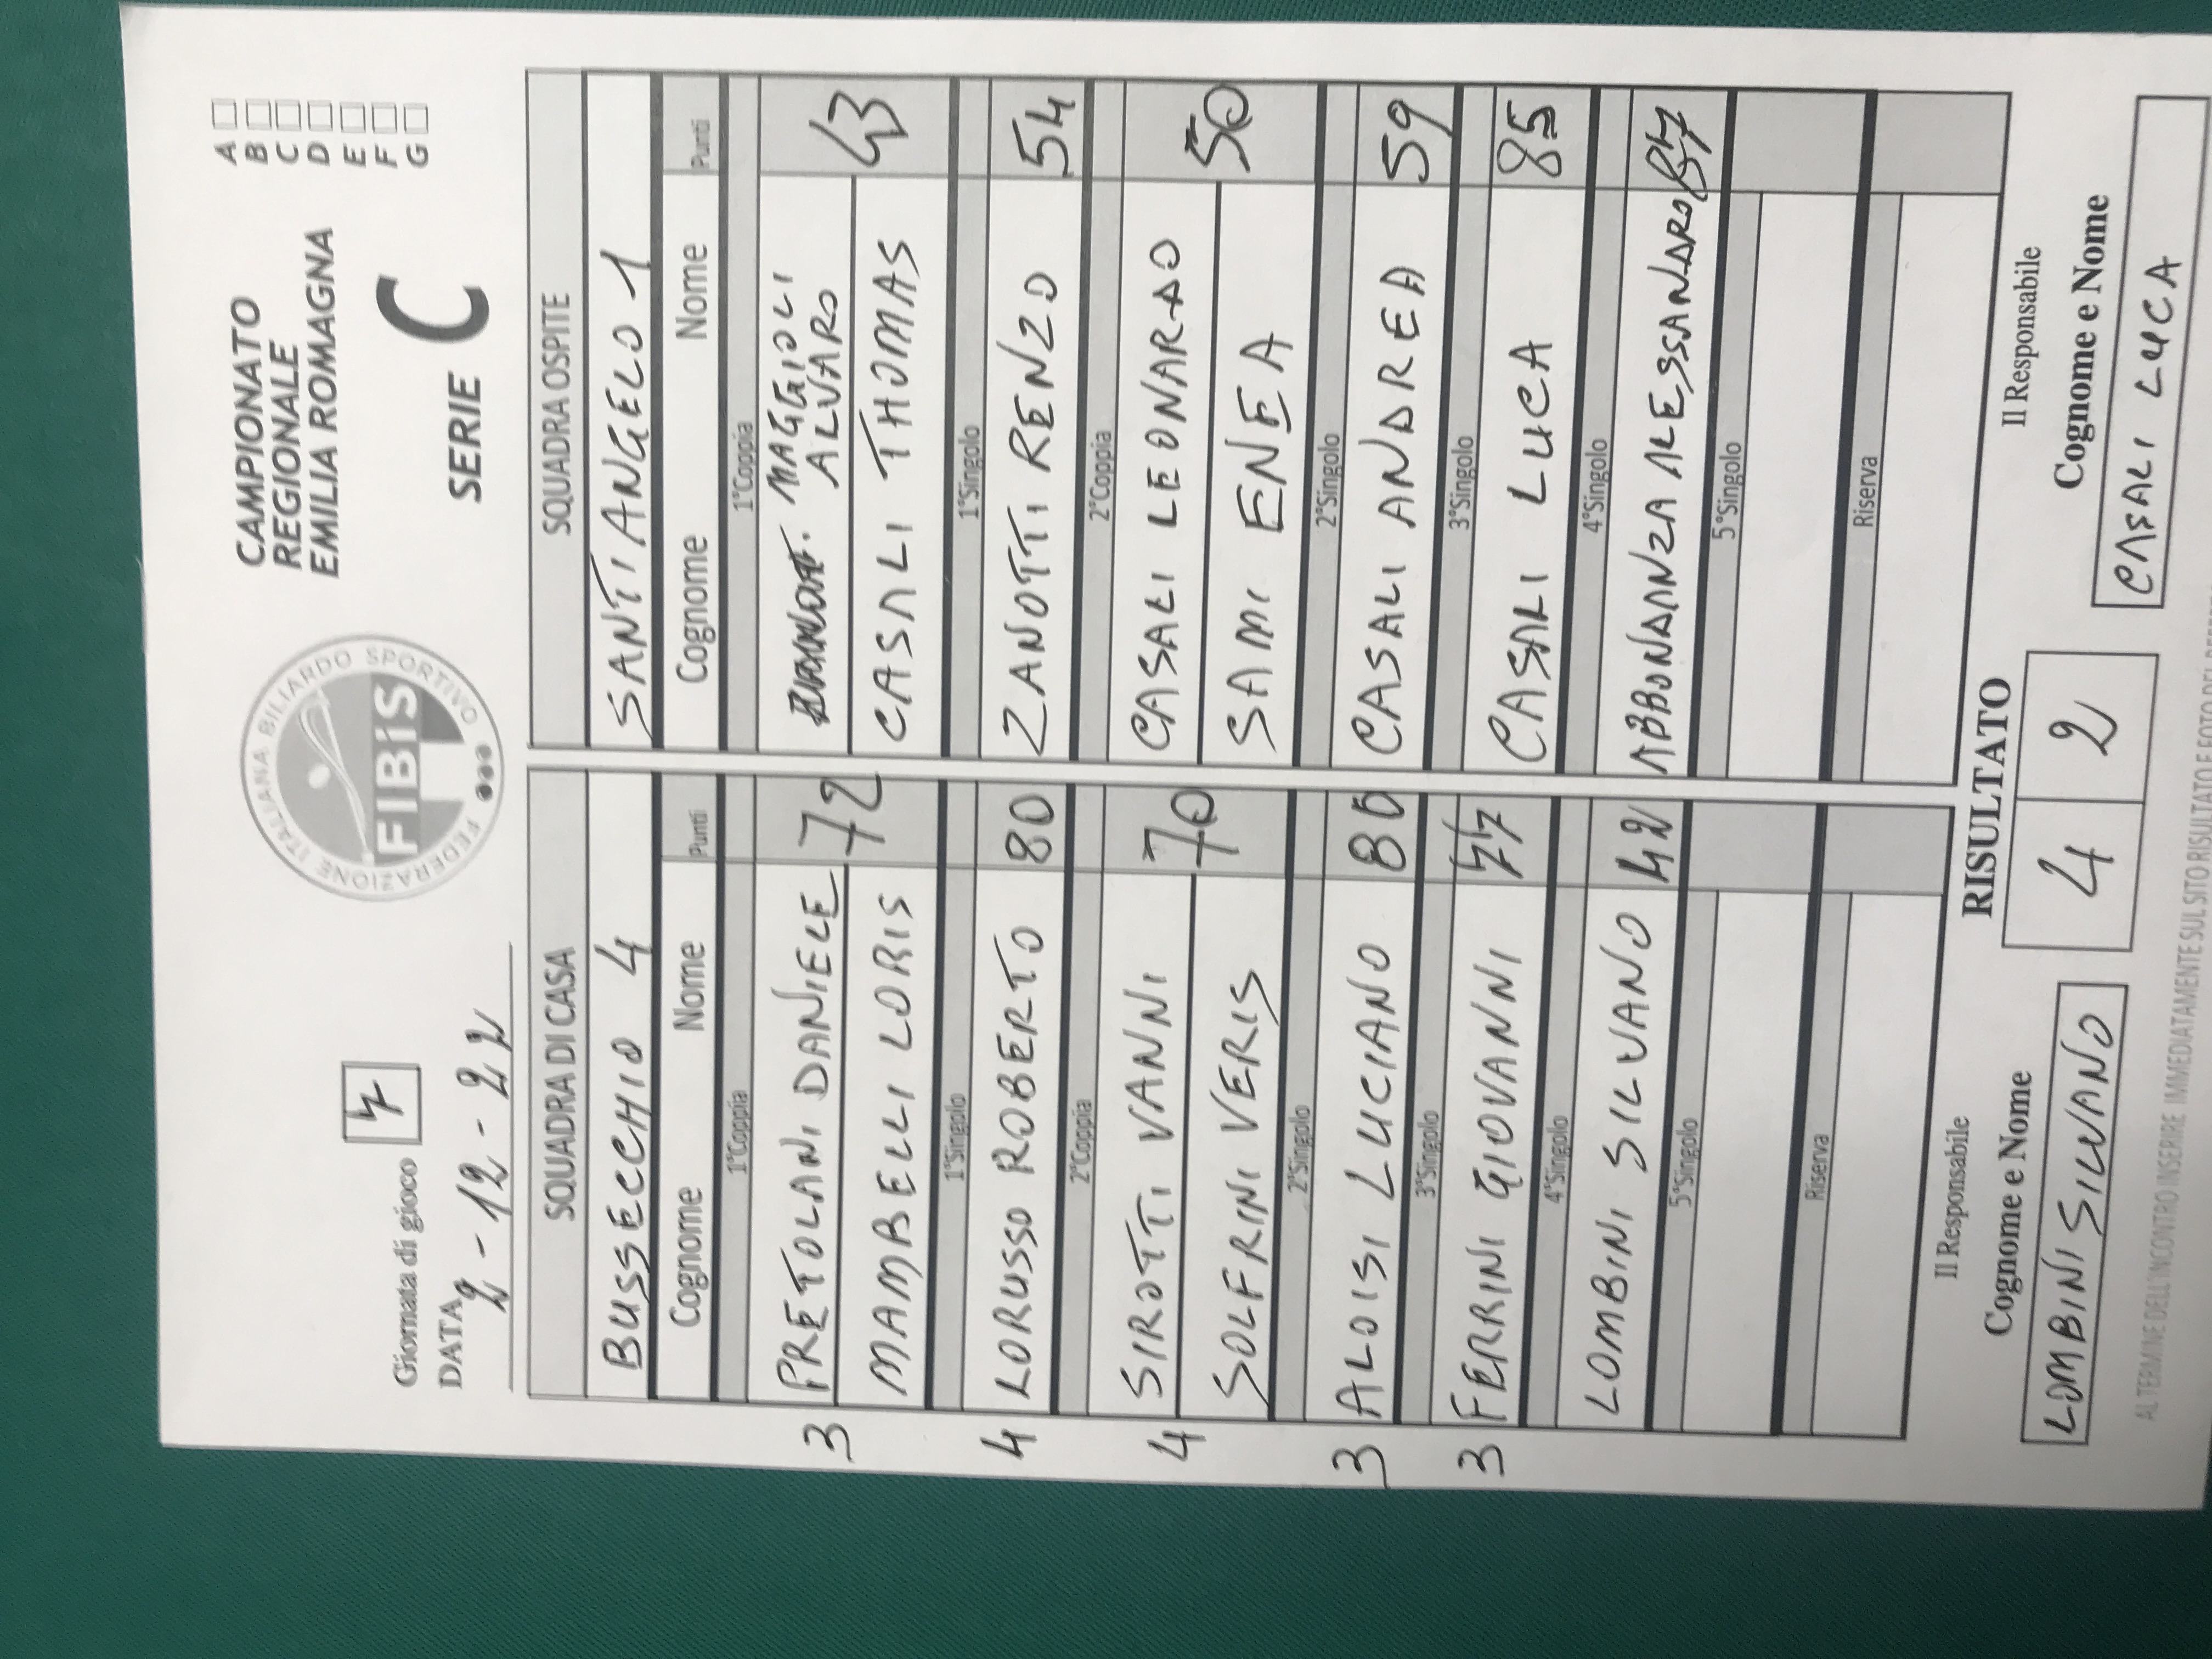 Giornata di gioco 7
DATA 2-12-22
FEDERAZIONE ITALIANA BILIARDO SPORTIVO
FIBiS
CAMPIONATO
REGIONALE
EMILIA ROMAGNA
SERIE C
A
B
C
D
E
F
G
SQUADRA DI CASA
BUSSECCHIO 4
Cognome Nome Punti
1°Coppia
3 PRETOLANI DANIELE 72
MAMBELLI LORIS
1°Singolo
4 LORUSSO ROBERTO 80
2°Coppia
4 SIROTTI VANNI 70
SOLFRINI VERIS
2°Singolo
3 ALOISI LUCIANO 80
3°Singolo
3 FERRINI GIOVANNI 77
4°Singolo
LOMBINI SILVANO 42
5°Singolo
Riserva
SQUADRA OSPITE
SANTIANGELO 1
Cognome Nome Punti
1°Coppia
MAGGIOLI
ALVARO 43
CASALI THOMAS
1°Singolo
ZANOTTI RENZO 54
2°Coppia
CASALI LEONARDO 50
SAMI ENEA
2°Singolo
CASALI ANDREA 59
3°Singolo
CASALI LUCA 85
4°Singolo
ABBONDANZA ALESSANDRO
5°Singolo
Riserva
Il Responsabile
Cognome e Nome
LOMBINI SILVANO
RISULTATO
4 2
Il Responsabile
Cognome e Nome
CASALI LUCA
AL TERMINE DELL'INCONTRO INSERIRE IMMEDIATAMENTE SUL SITO RISULTATO E FOTO DEL